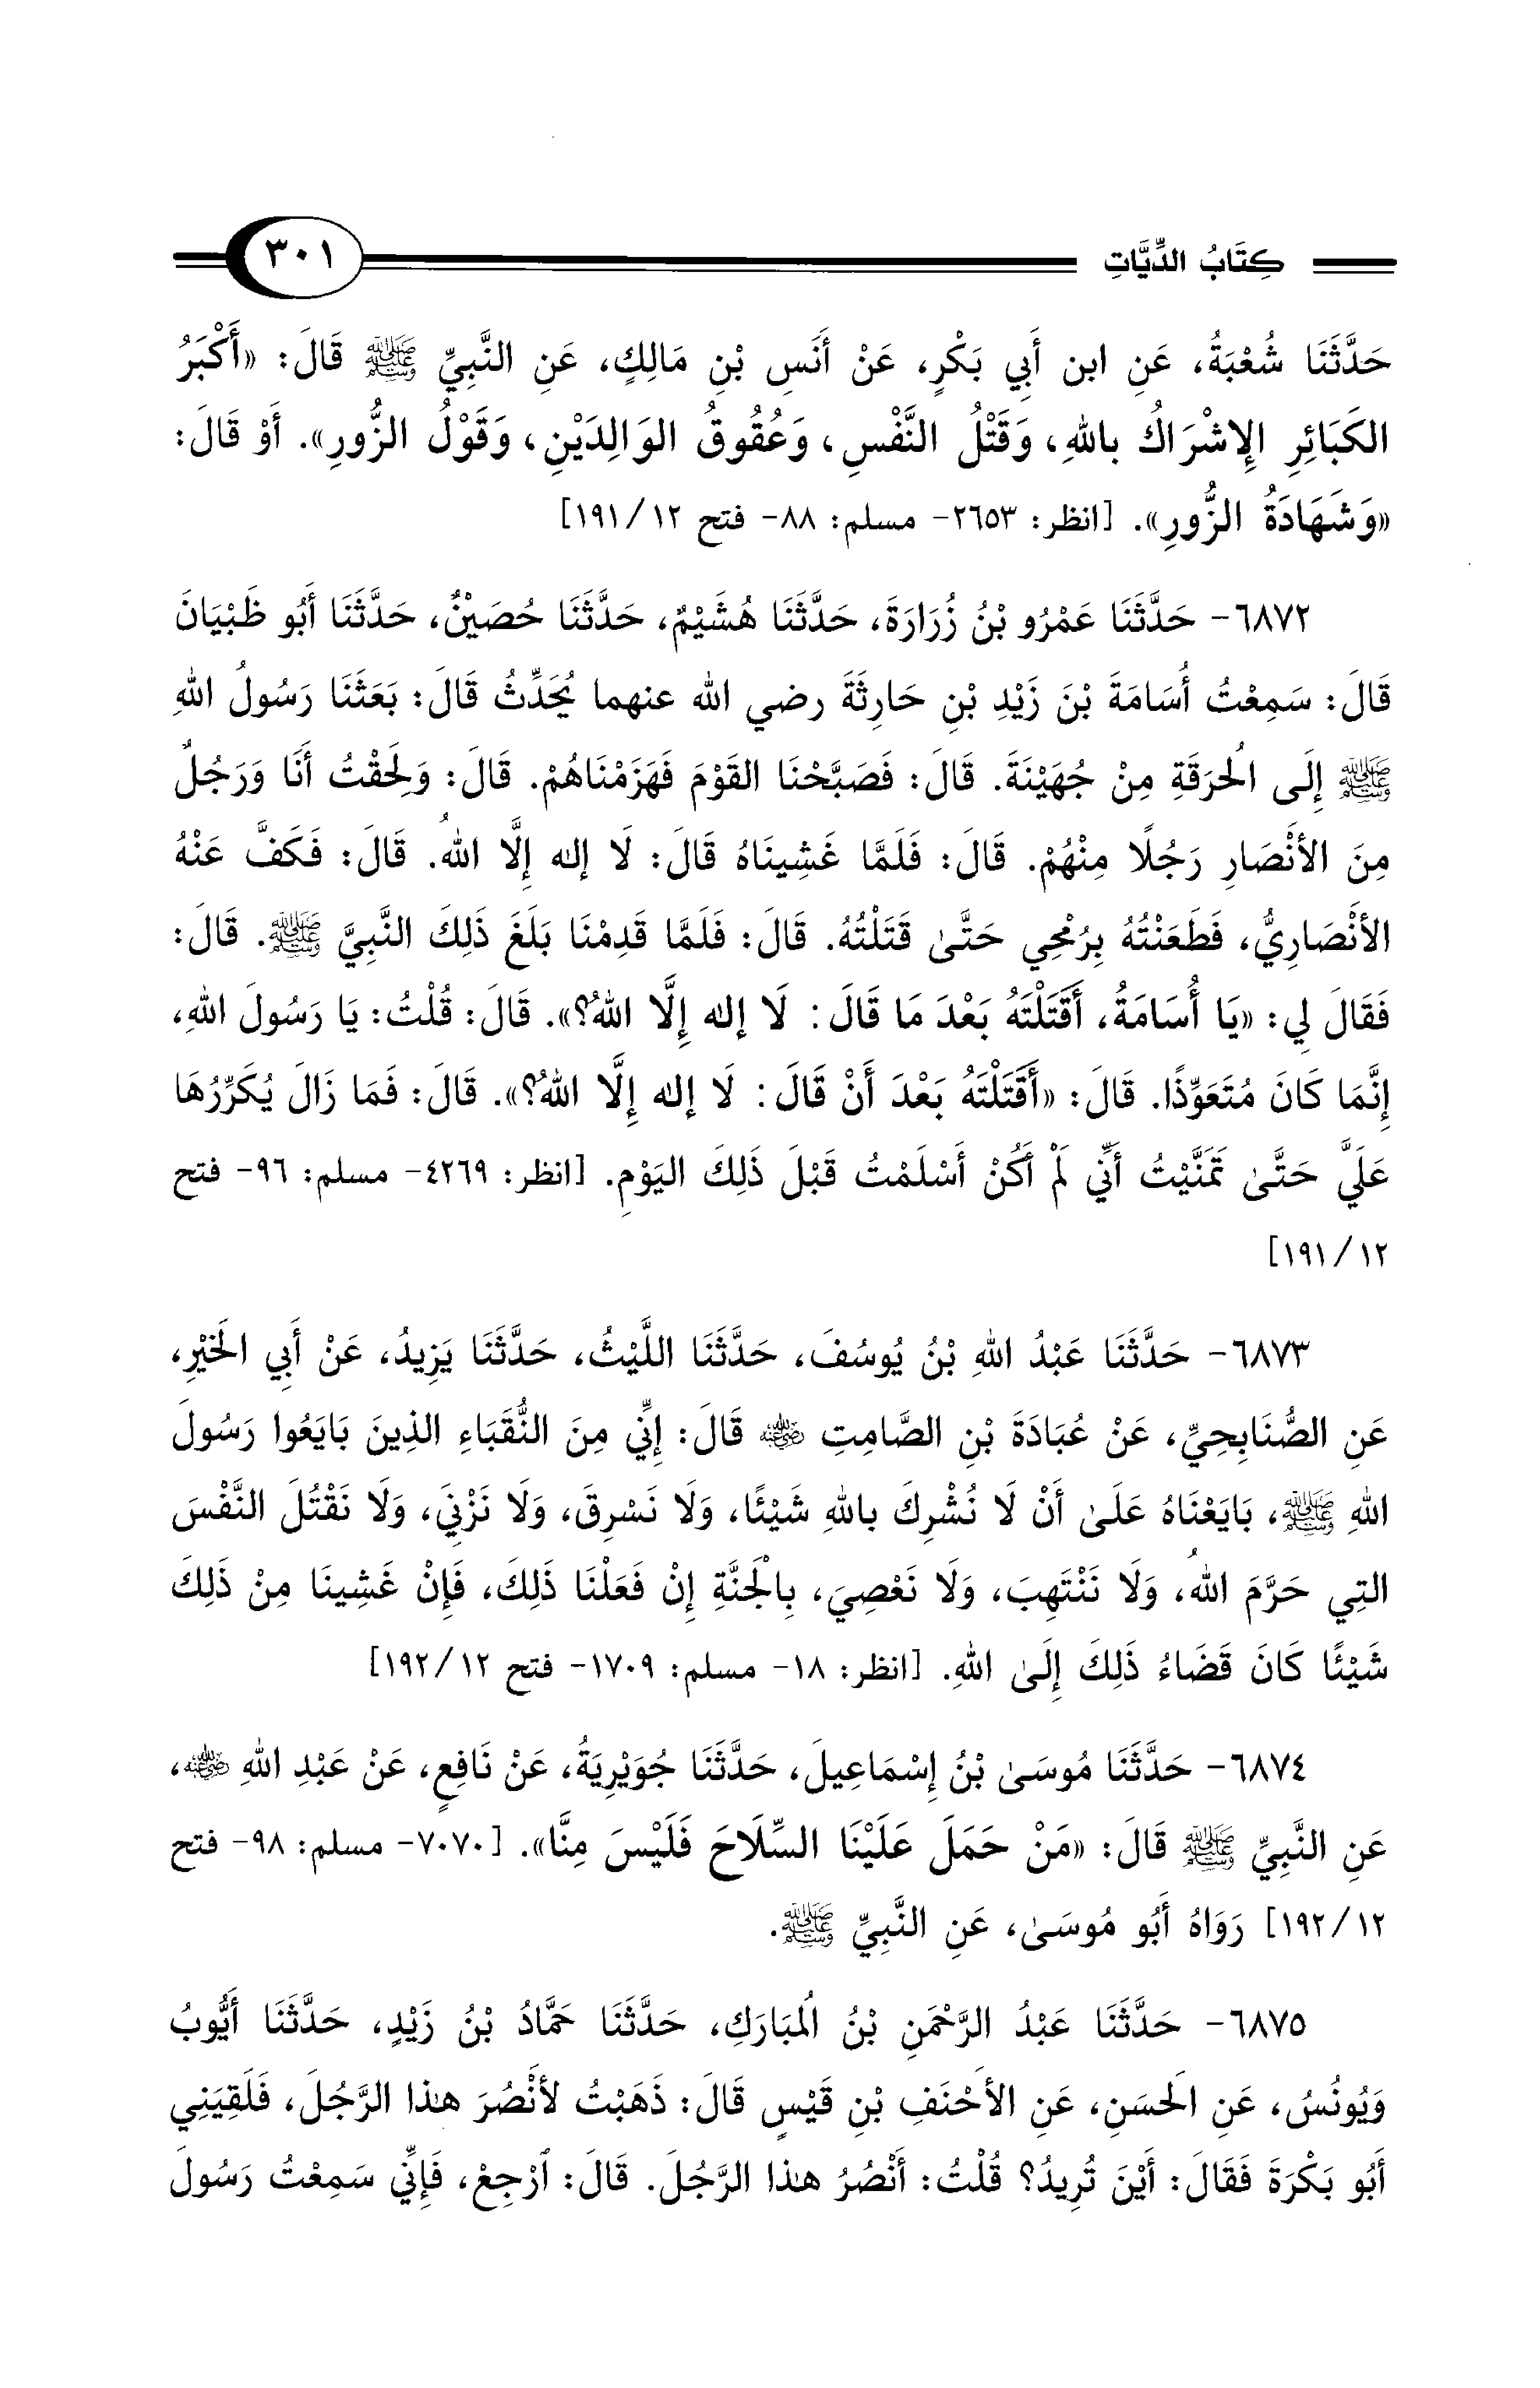 كِتَابُ الدِّيَّاتِ ٣٠١
حَدَّثَنَا شُعْبَةُ، عَنِ ابن أَبِي بَكْرٍ، عَنْ أَنَسِ بْنِ مَالِكٍ، عَنِ النَّبِيِّ ﷺ قَالَ: «أَكْبَرُ
الكَبَائِرِ الإِشْرَاكُ باللهِ، وَقَتْلُ النَّفْسِ، وَعُقُوقُ الوَالِدَيْنِ، وَقَوْلُ الزُّورِ». أَوْ قَالَ:
«وَشَهَادَةُ الزُّورِ». [انظر: ٢٦٥٣- مسلم: ٨٨- فتح ١٢/ ١٩١]
٦٨٧٢- حَدَّثَنَا عَمْرُو بْنُ زُرَارَةَ، حَدَّثَنَا هُشَيْمٌ، حَدَّثَنَا حُصَيْنٌ، حَدَّثَنَا أَبُو ظَبْيَانَ
قَالَ: سَمِعْتُ أُسَامَةَ بْنَ زَيْدِ بْنِ حَارِثَةَ رضي الله عنهما يُحَدِّثُ قَالَ: بَعَثَنَا رَسُولُ اللهِ
ﷺ إِلَى الُحرَقَةِ مِنْ جُهَيْنَةَ. قَالَ: فَصَبَّحْنَا القَوْمَ فَهَزَمْنَاهُمْ. قَالَ: وَلَحِقْتُ أَنَا وَرَجُلٌ
مِنَ الأَنْصَارِ رَجُلًا مِنْهُمْ. قَالَ: فَلَمَّا غَشِينَاهُ قَالَ: لَا إله إِلَّا اللهُ. قَالَ: فَكَفَّ عَنْهُ
الأَنْصَارِيُّ، فَطَعَنْتُهُ بِرُمْحِي حَتَّىٰ قَتَلْتُهُ. قَالَ: فَلَمَّا قَدِمْنَا بَلَغَ ذَلِكَ النَّبِيَّ ﷺ. قَالَ:
فَقَالَ لِي: «يَا أُسَامَةُ، أَقَتَلْتَهُ بَعْدَ مَا قَالَ: لَا إله إِلَّا اللهُ؟». قَالَ: قُلْتُ: يَا رَسُولَ اللهِ،
إِنَّمَا كَانَ مُتَعَوِّذًا. قَالَ: «أَقَتَلْتَهُ بَعْدَ أَنْ قَالَ: لَا إله إِلَّا اللهُ؟». قَالَ: فَمَا زَالَ يُكَرِّرُهَا
عَلَيَّ حَتَّىٰ تَمَنَّيْتُ أَنِّي لَمْ أَكُنْ أَسْلَمْتُ قَبْلَ ذَلِكَ اليَوْمِ. [انظر: ٤٢٦٩- مسلم: ٩٦- فتح
١٢/ ١٩١]
٦٨٧٣- حَدَّثَنَا عَبْدُ اللهِ بْنُ يُوسُفَ، حَدَّثَنَا اللَّيْثُ، حَدَّثَنَا يَزِيدُ، عَنْ أَبِي الَخيْرِ،
عَنِ الصُّنَابِحِيِّ، عَنْ عُبَادَةَ بْنِ الصَّامِتِ رضي الله عنه قَالَ: إِنِّي مِنَ النُّقَبَاءِ الذِينَ بَايَعُوا رَسُولَ
اللهِ ﷺ، بَايَعْنَاهُ عَلَىٰ أَنْ لَا نُشْرِكَ باللهِ شَيْئًا، وَلَا نَسْرِقَ، وَلَا نَزْنِيَ، وَلَا نَقْتُلَ النَّفْسَ
التِي حَرَّمَ اللهُ، وَلَا نَنْتَهِبَ، وَلَا نَعْصِيَ، بِالْجَنَّةِ إِنْ فَعَلْنَا ذَلِكَ، فَإِنْ غَشِينَا مِنْ ذَلِكَ
شَيْئًا كَانَ قَضَاءُ ذَلِكَ إِلَىٰ اللهِ. [انظر: ١٨- مسلم: ١٧٠٩- فتح ١٢/ ١٩٢]
٦٨٧٤- حَدَّثَنَا مُوسَىٰ بْنُ إِسْمَاعِيلَ، حَدَّثَنَا جُوَيْرِيَةُ، عَنْ نَافِعٍ، عَنْ عَبْدِ اللهِ رضي الله عنه،
عَنِ النَّبِيِّ ﷺ قَالَ: «مَنْ حَمَلَ عَلَيْنَا السِّلَاحَ فَلَيْسَ مِنَّا». [٧٠٧٠- مسلم: ٩٨- فتح
١٢/ ١٩٢] رَوَاهُ أَبُو مُوسَىٰ، عَنِ النَّبِيِّ ﷺ.
٦٨٧٥- حَدَّثَنَا عَبْدُ الرَّحْمَنِ بْنُ الُمبَارَكِ، حَدَّثَنَا حَمَّادُ بْنُ زَيْدٍ، حَدَّثَنَا أَيُّوبُ
وَيُونُسُ، عَنِ الَحسَنِ، عَنِ الأَحْنَفِ بْنِ قَيْسٍ قَالَ: ذَهَبْتُ لأَنْصُرَ هذا الرَّجُلَ، فَلَقِيَنِي
أَبُو بَكْرَةَ فَقَالَ: أَيْنَ تُرِيدُ؟ قُلْتُ: أَنْصُرُ هذا الرَّجُلَ. قَالَ: ٱرْجِعْ، فَإِنِّي سَمِعْتُ رَسُولَ